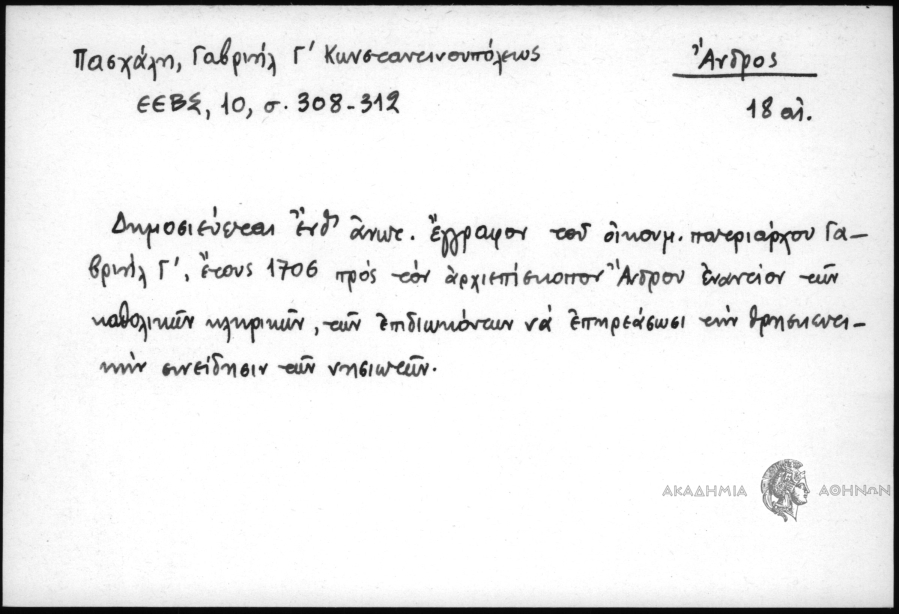 Πασχάλη, Γαβριήλ Γ' Κωνσταντινουπόλεως
Ἄνδρος
ΕΕΒΣ, 10, σ. 308-312
18 αἰ.
Δημοσιεύεται ἔνθ' ἀνωτ. ἔγγραφον τοῦ οἰκουμ. πατριάρχου Γα-
βριήλ Γ', ἔτους 1706 πρός τόν ἀρχιεπίσκοπον Ἄνδρου ἐναντίον τῶν
καθολικῶν κληρικῶν, τῶν ἐπιδιωκόντων νά ἐπηρεάσωσι τήν θρησκευτι-
κήν συνείδησιν τῶν νησιωτῶν.
ΑΚΑΔΗΜΙΑ ΑΘΗΝΩΝ